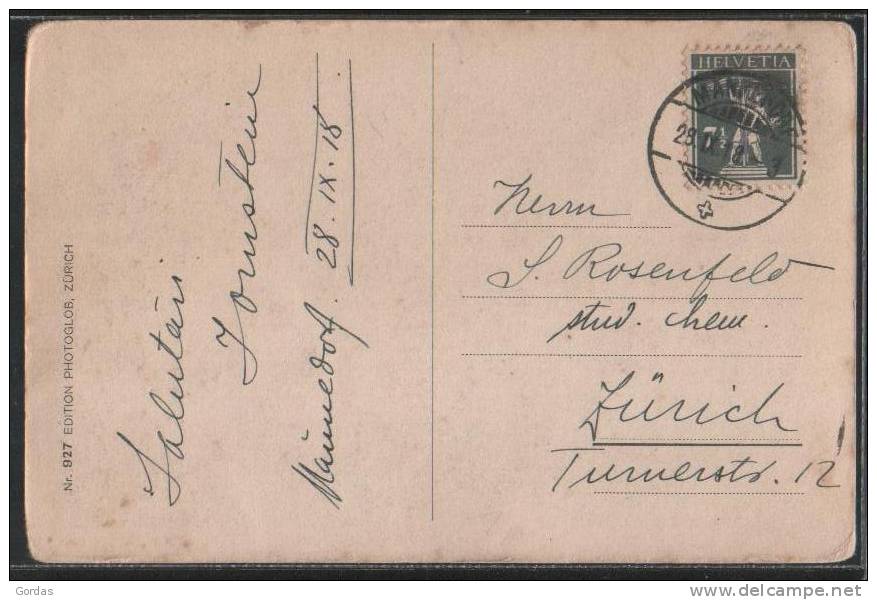 Nr. 927 EDITION PHOTOGLOB, ZÜRICH
Salutări
Männedorf. 28.IX.18.
HELVETIA
7½
Herrn
S. Rosenfeld
stud. chem.
Zürich
Turnerstr. 12
Gordas
delcampe.net